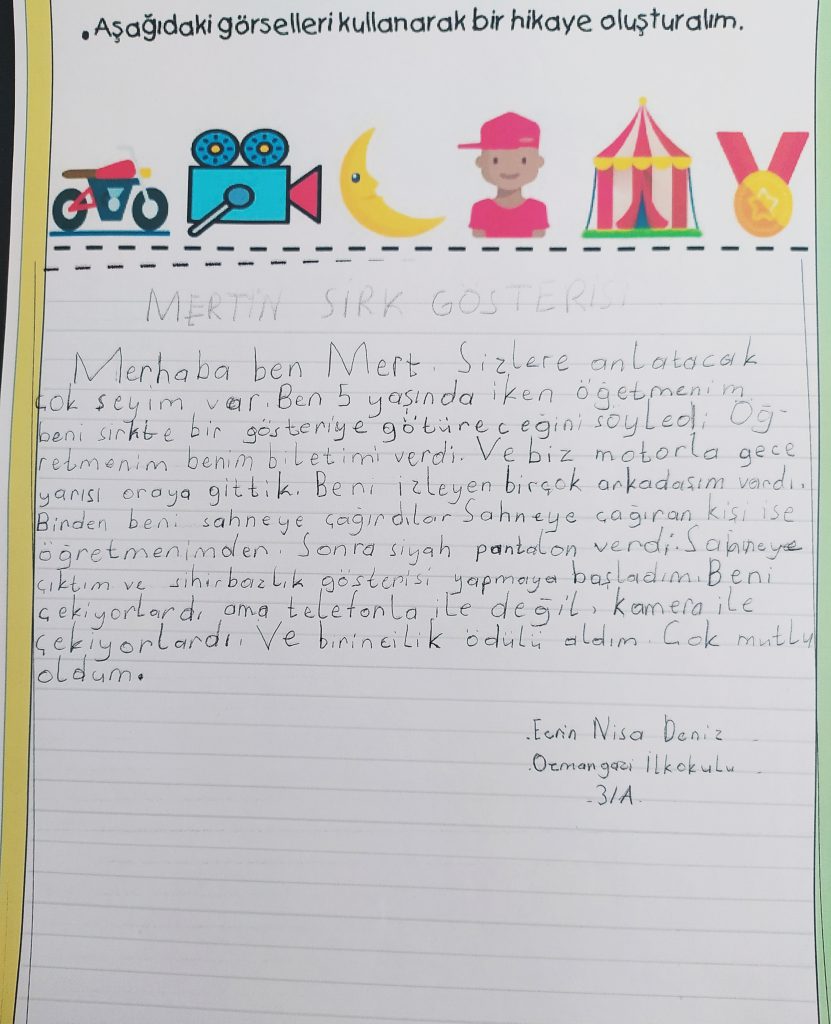 . Aşağıdaki görselleri kullanarak bir hikaye oluşturalım.
MERTİN SİRK GÖSTERİSİ
Merhaba ben Mert. Sizlere anlatacak
çok şeyim var. Ben 5 yaşında iken öğetmenim
beni sirkte bir gösteriye götüreceğini söyledi Öğ-
retmenim benim biletimi verdi. Ve biz motorla gece
yarısı oraya gittik. Beni izleyen birçok arkadaşım vardı.
Birden beni sahneye çağırdılar Sahneye çağıran kişi ise
öğretmenimden. Sonra siyah pantalon verdi. Sahneye
çıktım ve sihirbazlık gösterisi yapmaya başladım. Beni
çekiyorlardı ama telefonla ile değil, kamera ile
çekiyorlardı. Ve birincilik ödülü aldım. Çok mutlu
oldum.
. Ecrin Nisa Deniz
. Osmangazi İlkokulu
- 3/A